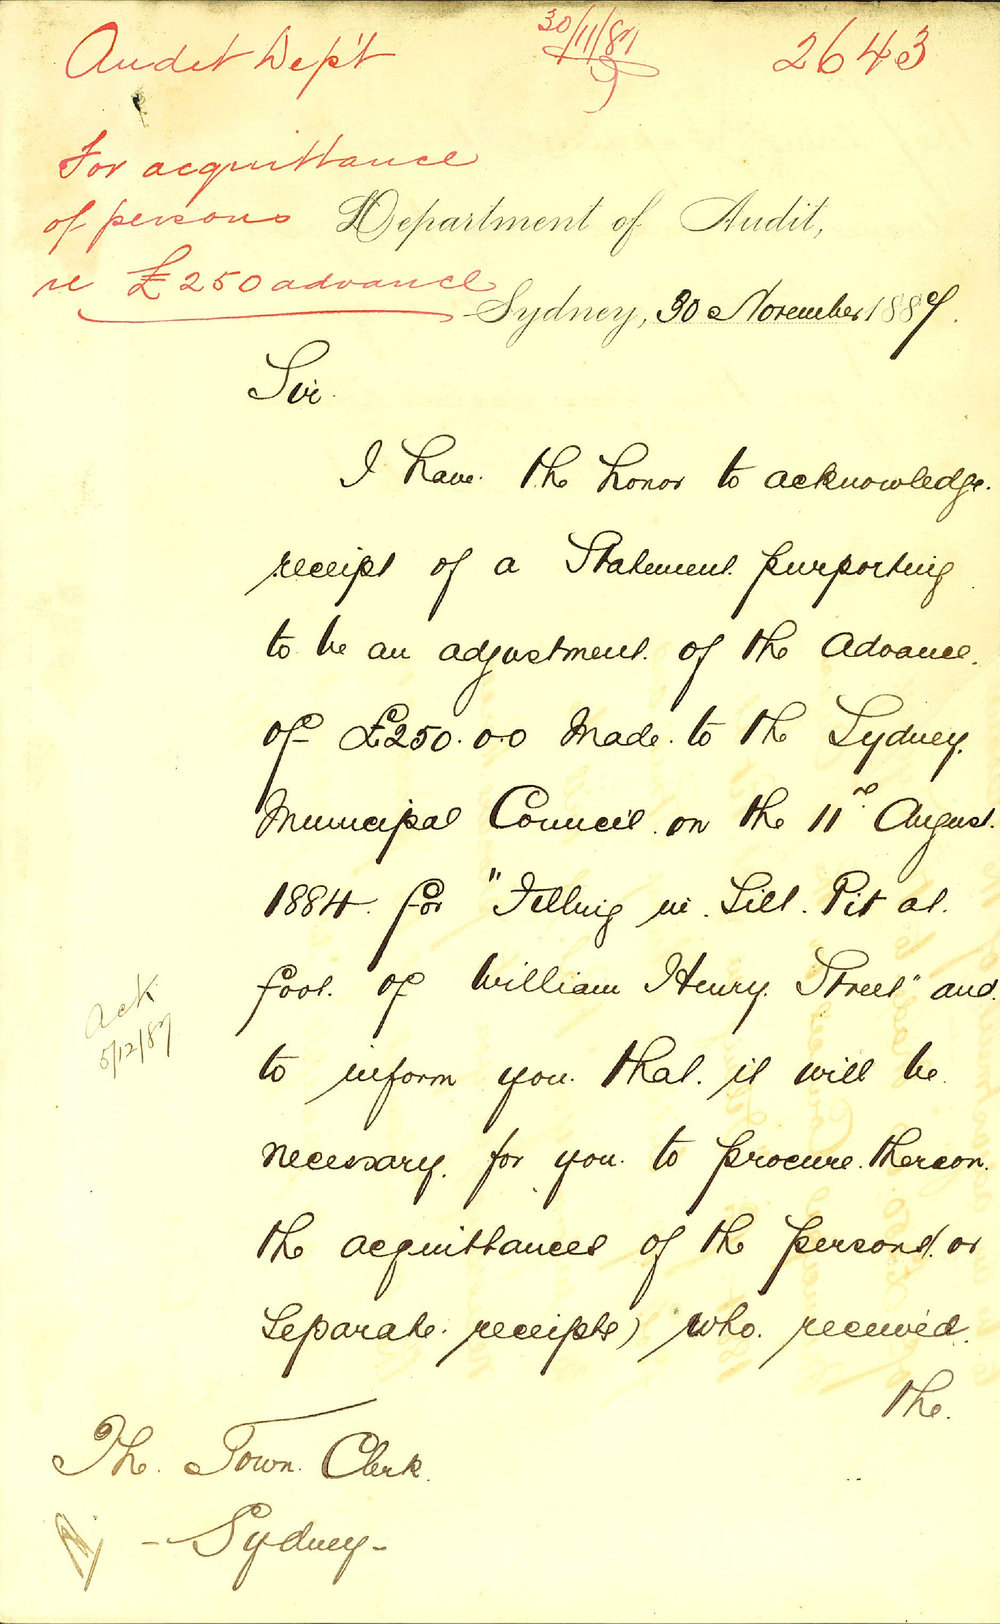 Audit Dep't
30/11/87
2643
For acquittance
of persons
re £250 advance
Department of Audit,
Sydney, 30 November 1887.
Sir.
I have the honor to acknowledge
receipt of a Statement purporting
to be an adjustment of the Advance
of £250.0.0 Made to the Sydney
Municipal Council on the 11th August
1884 for "Filling in Silt Pit at
foot of William Henry Street" and
to inform you that it will be
necessary for you to procure thereon
the acquittances of the persons (or
Separate receipts) who received
the
Ack
5/12/87
The Town Clerk
- Sydney -